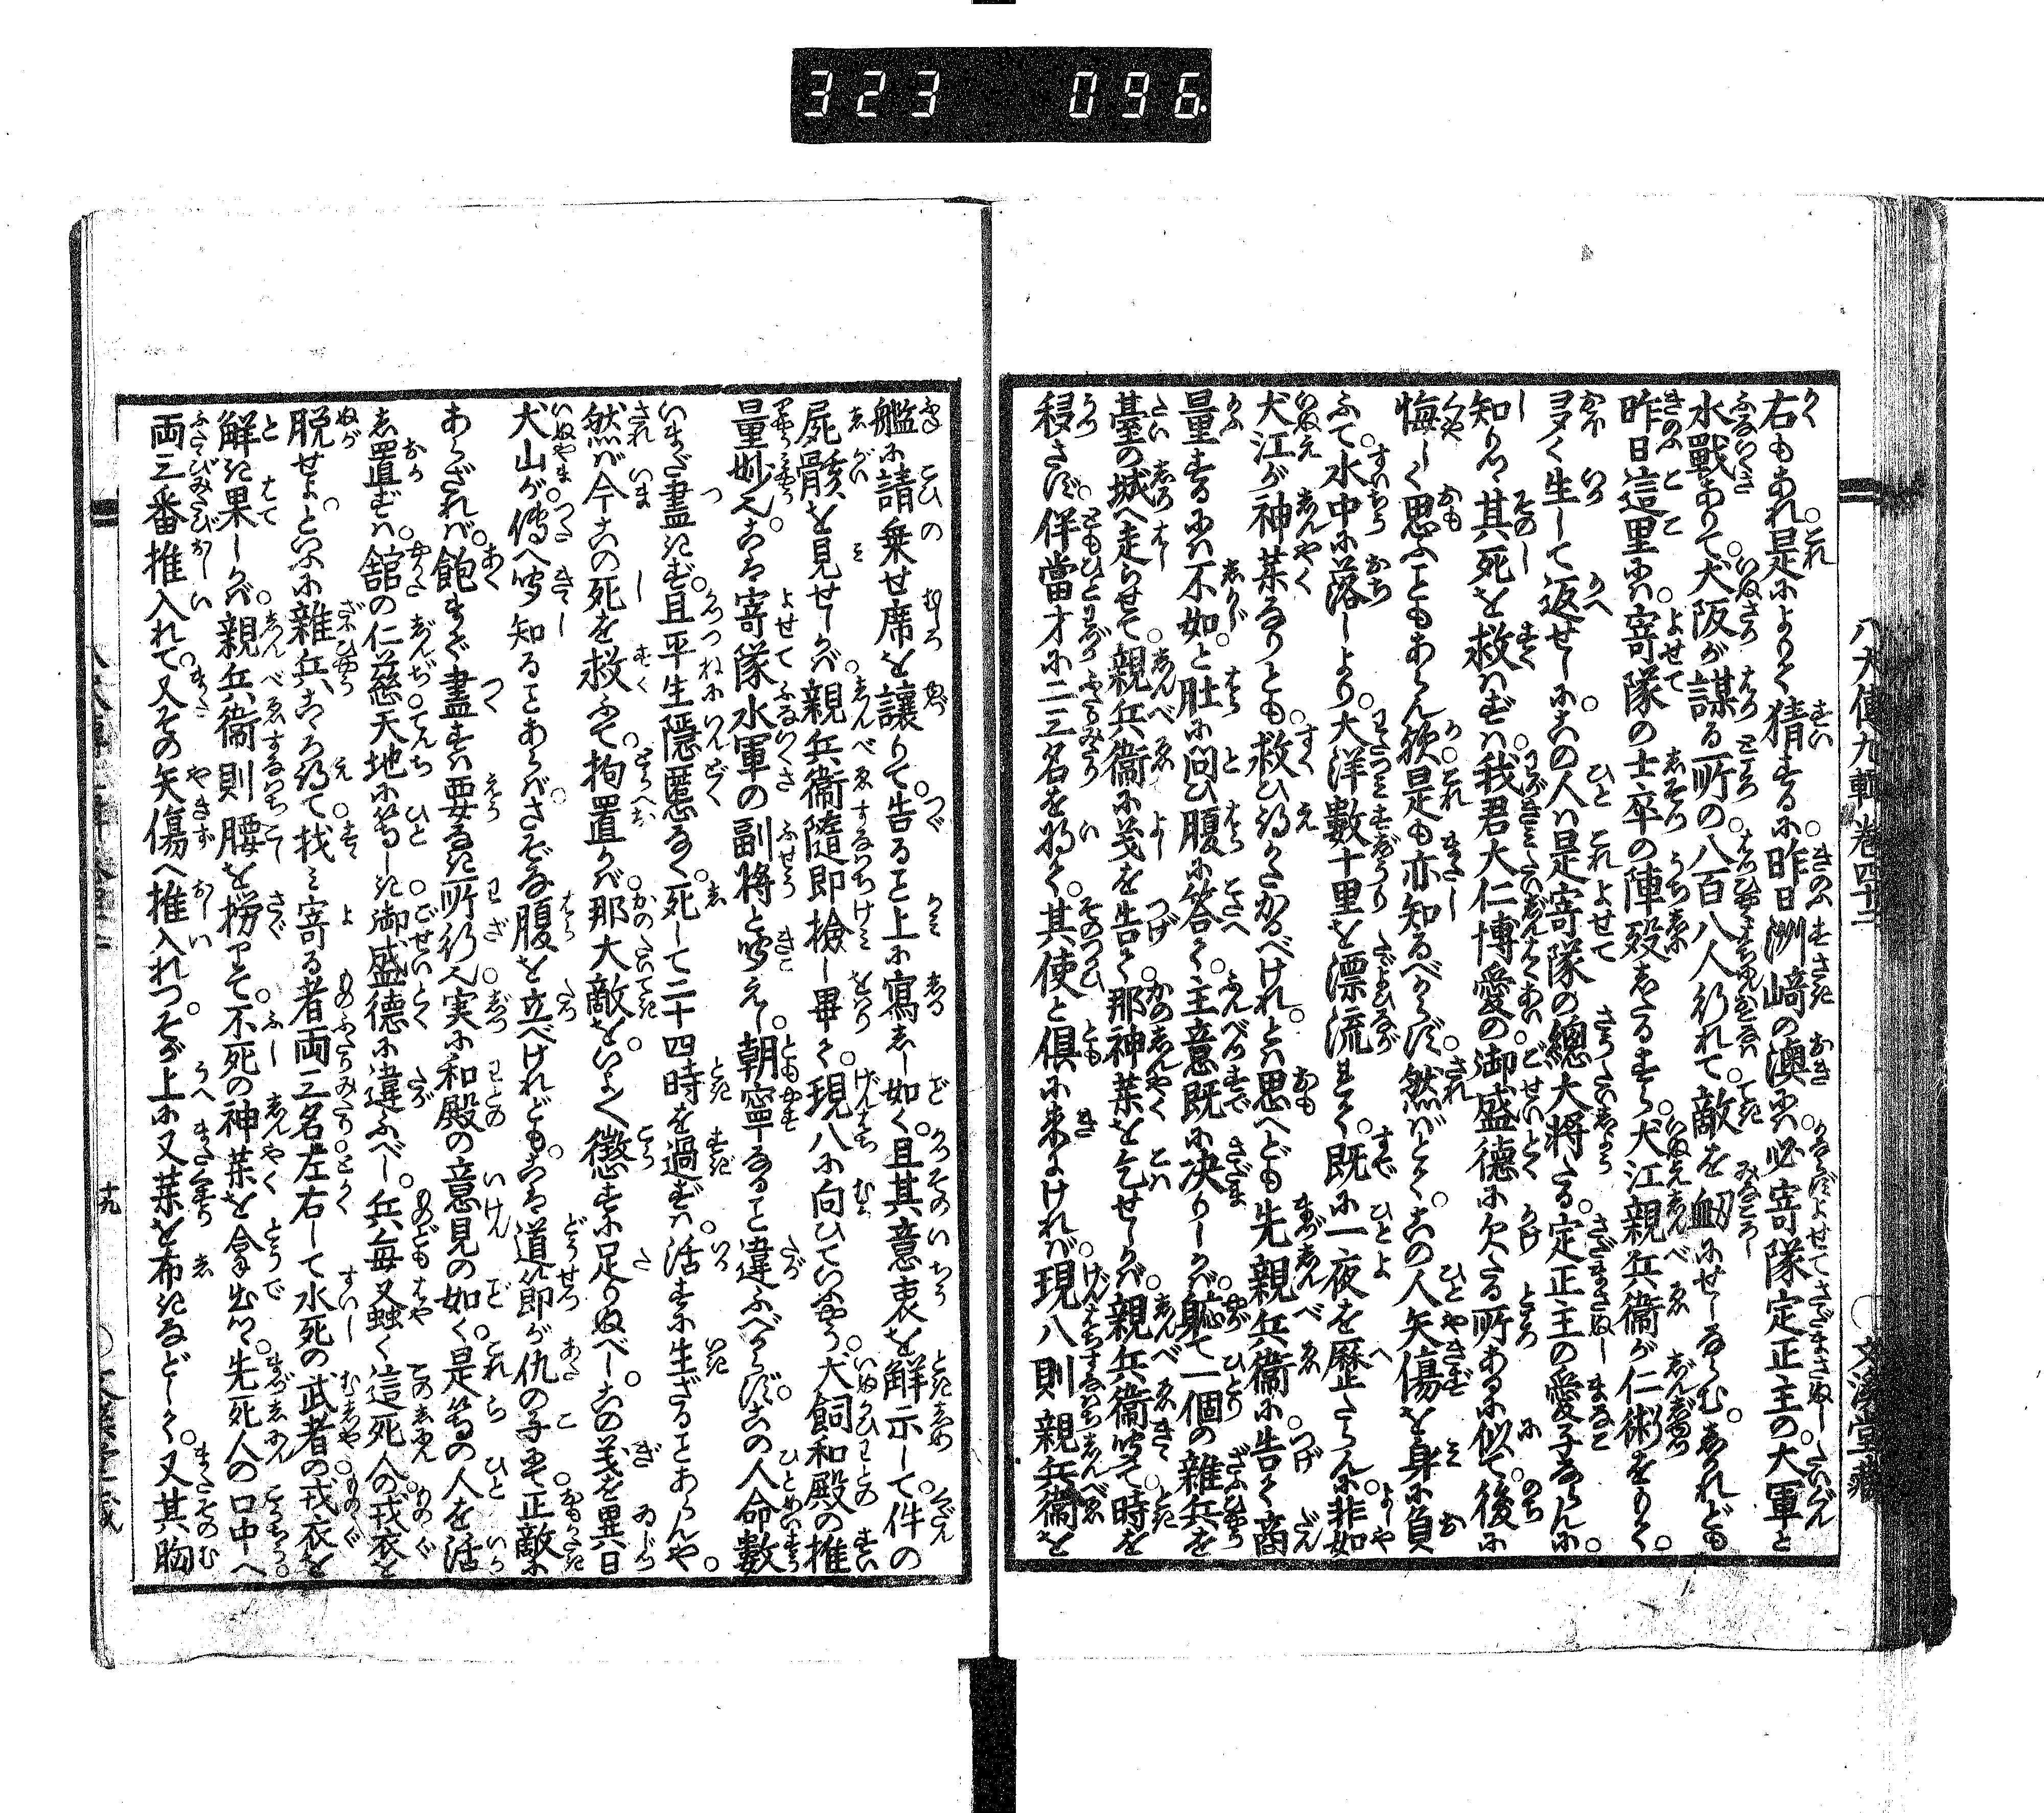 323 096
八犬傳九輯卷四十二
○文溪堂藏
右もあれ是によりて猜するに昨日洲﨑の澳には必寄隊定正主の大軍と
水戰ありて犬阪が謀る所の八百八人行れて敵を衂にせしならむ。されども
昨日這里には寄隊の士卒の陣歿したるすら犬江親兵衞が仁術をもて。
多く生して返せしに。この人は是寄隊の總大将たる。定正主の愛子ならんに。
知りつゝ其死を救はずは。我君大仁博愛の御盛德に欠たる所あるに似て。後に
悔しく思ふこともあらん歟。是も亦知るべからず。然ばとて。この人矢傷を身に負
ふて。水中に落しより。大洋數十里を漂流して。既に一夜を歴たらんに。非如
犬江が神藥なりとも。救ひ得かたかるべけれ。とは思へども先親兵衞に告て商
量するには不如。と肚に問ひ腹に答て。主意既に决りしかば。軈て一個の雜兵を
臺の城へ走らせて。親兵衞に義を告て。那神藥を乞せしかば。親兵衞聞て時を
移さず。伴當才に二三名を將て。其使と倶に来にければ。現八則親兵衞を
艦に請乗せ席を讓りて。告ること上に寫しし如く。且其意衷を解示して。件の
屍骸を見せしかば。親兵衞隨即撿し畢て。現八に向ひていふやう。犬飼和殿の推
量妙也。こは寄隊水軍の副将と聞えし。朝寧なること違ふべからず。この人命數
いまだ盡きず。且平生隱慝なく。死して二十四時を過ずは。活すに生ざることあらんや。
然ば今この死を救ふて。拘置かば。那大敵を。いよゝ徴すに足りぬべし。この義を異日
犬山が傳へ聞知ることあらば。さぞな腹を立べけれども。こは道節が仇の子にて。正敵に
あらざれば。飽まで盡すは要なき所行也。実に和殿の意見の如く。是等の人を活
し置ずは。舘の仁慈天地に等しき。御盛德に違ふべし。兵毎又蚤く這死人の。戎衣を
脱せよ。といふに雜兵。こゝろ得て。找み寄る者両三名左右して水死の武者の。戎衣を
解き果しかば。親兵衞則腰を撈りて。不死の神藥を拿出つ。先死人の口中へ
両三番推入れて。又その矢傷へ推入れつ。そが上に又藥を布きなどしく。又其胸
十九